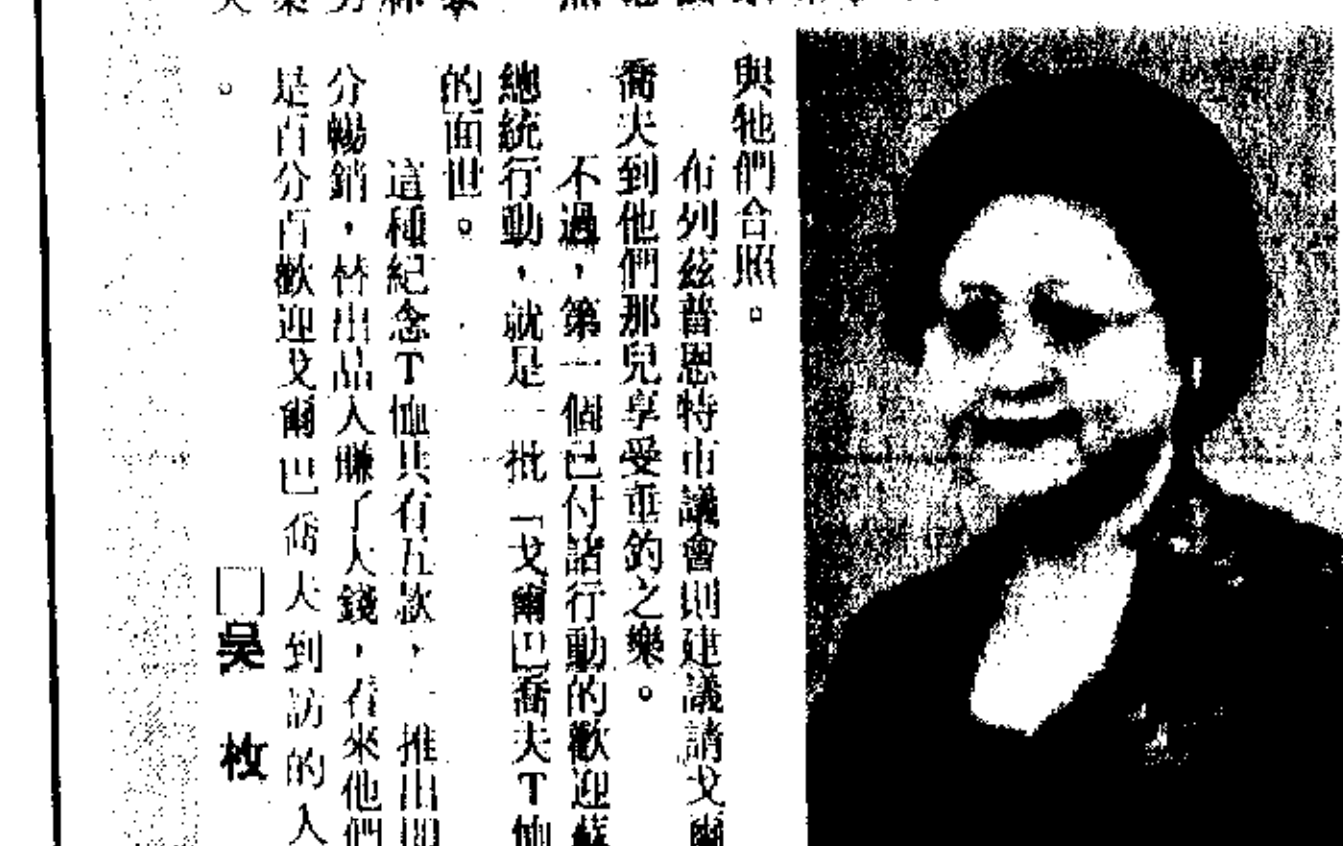 與牠們合照。
布列茲普恩特市議會則建議請戈爾
喬夫到他們那兒享受垂釣之樂。
不過，第一個已付諸行動的歡迎蘇
總統行動，就是一批「戈爾巴喬夫T恤
的面世。
這種紀念T恤共有五款，一推出即
分暢銷，替出品人賺了大錢，看來他們
是百分百歡迎戈爾巴喬夫到訪的人
。
□吳 枚